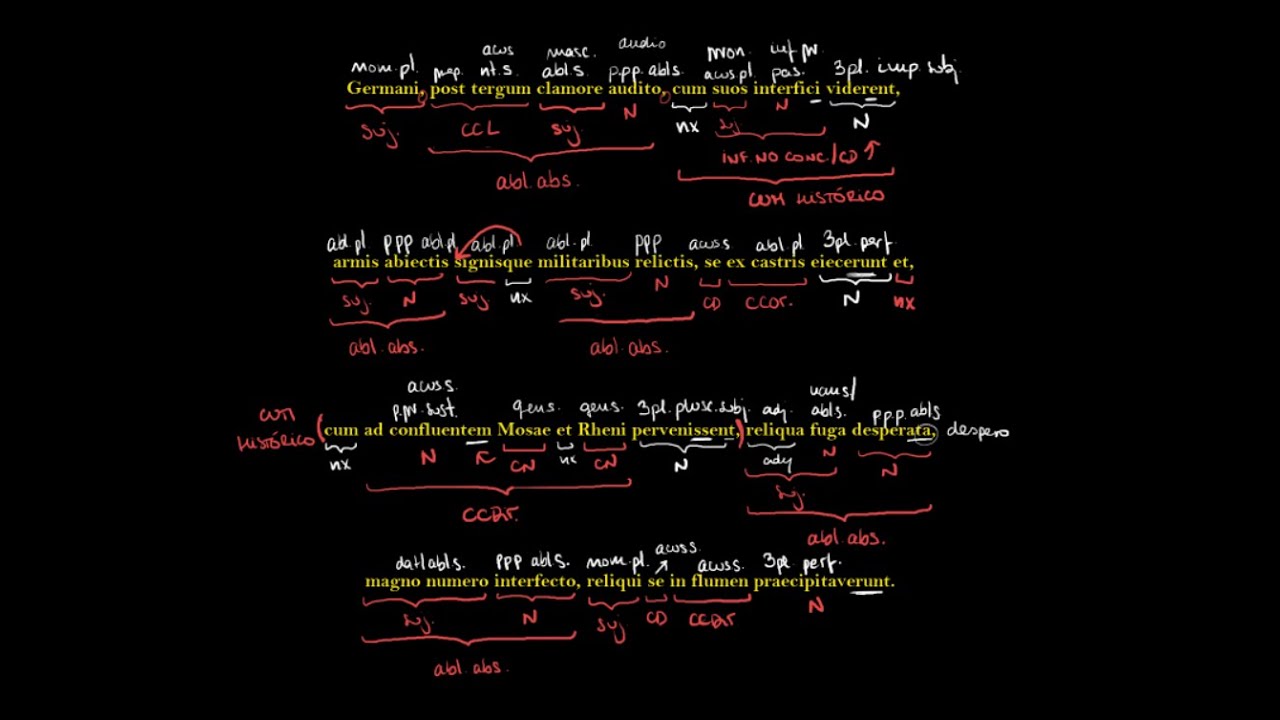 acus masc. audio pron. inf. pr.
nom. pl. prep. nt. s. abl. s. p.pp. abl s. acus pl pas. 3 pl. imp. subj.
Germani, post tergum clamore audito, cum suos interfici viderent,
Suj. CCL suj. N nx suj N N
INF. NO CONC./CD ↑
abl. abs. CUM HISTÓRICO
abl. pl. ppp abl. pl. abl. pl. abl. pl. ppp acus s abl. pl 3 pl. perf.
armis abiectis signisque militaribus relictis, se ex castris eiecerunt et,
suj. N suj nx suj. N CD CCOr. N nx
abl. abs. abl. abs.
acus s.
p.pr. sust. gen s. gen s. 3 pl. plusc. subj. adj. abl s. p.p.p. abl s
CUM HISTÓRICO (cum ad confluentem Mosae et Rheni pervenissent,) reliqua fuga desperata, despero
nx N CN nx CN N ady N N
Suj.
CCDir. abl. abs.
dat/abl s. ppp abl s. nom. pl. acus s. acus s. 3 pl. perf.
magno numero interfecto, reliqui se in flumen praecipitaverunt.
Suj. N suj CD CCDir N
abl. abs.